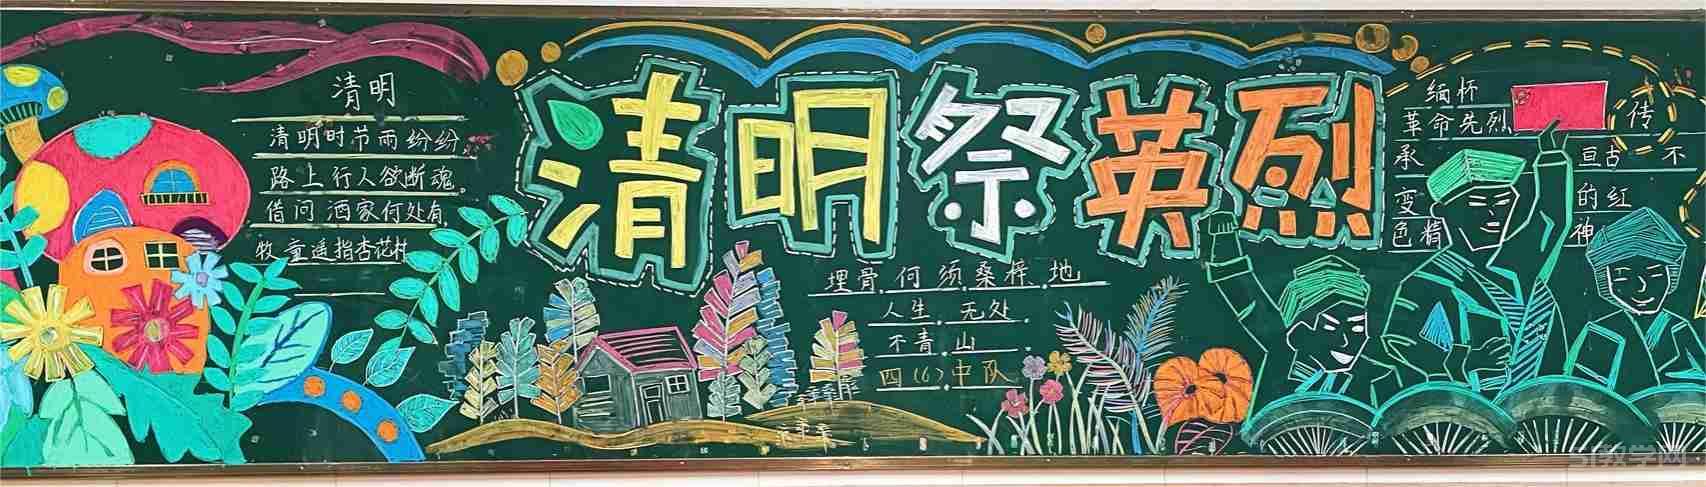 清明
清明时节雨纷纷,
路上行人欲断魂。
借问酒家何处有,
牧童遥指杏花村
清明祭英烈
埋骨何须桑梓地
人生无处
不青山
四(6)中队
缅怀
革命先烈 传
承 亘古 不
变 的红
色精 神
51教学网